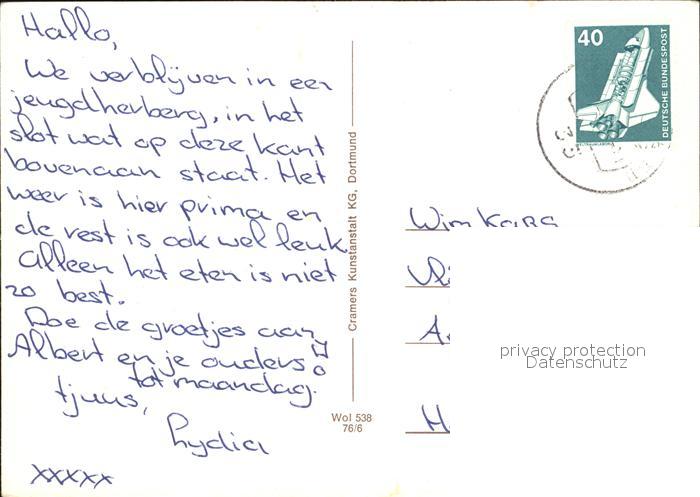 Hallo,
We verblijven in een
jeugdherberg, in het
slot wat op deze kant
bovenaan staat. Het
weer is hier prima en
de rest is ook wel leuk.
Alleen het eten is niet
zo best.
Doe de groetjes aan
Albert en je ouders
tot maandag.
tjuus,
Lydia
xxxxx
Cramers Kunstanstalt KG, Dortmund
Wol 538
76/6
40
DEUTSCHE BUNDESPOST
Wim
privacy protection
Datenschutz